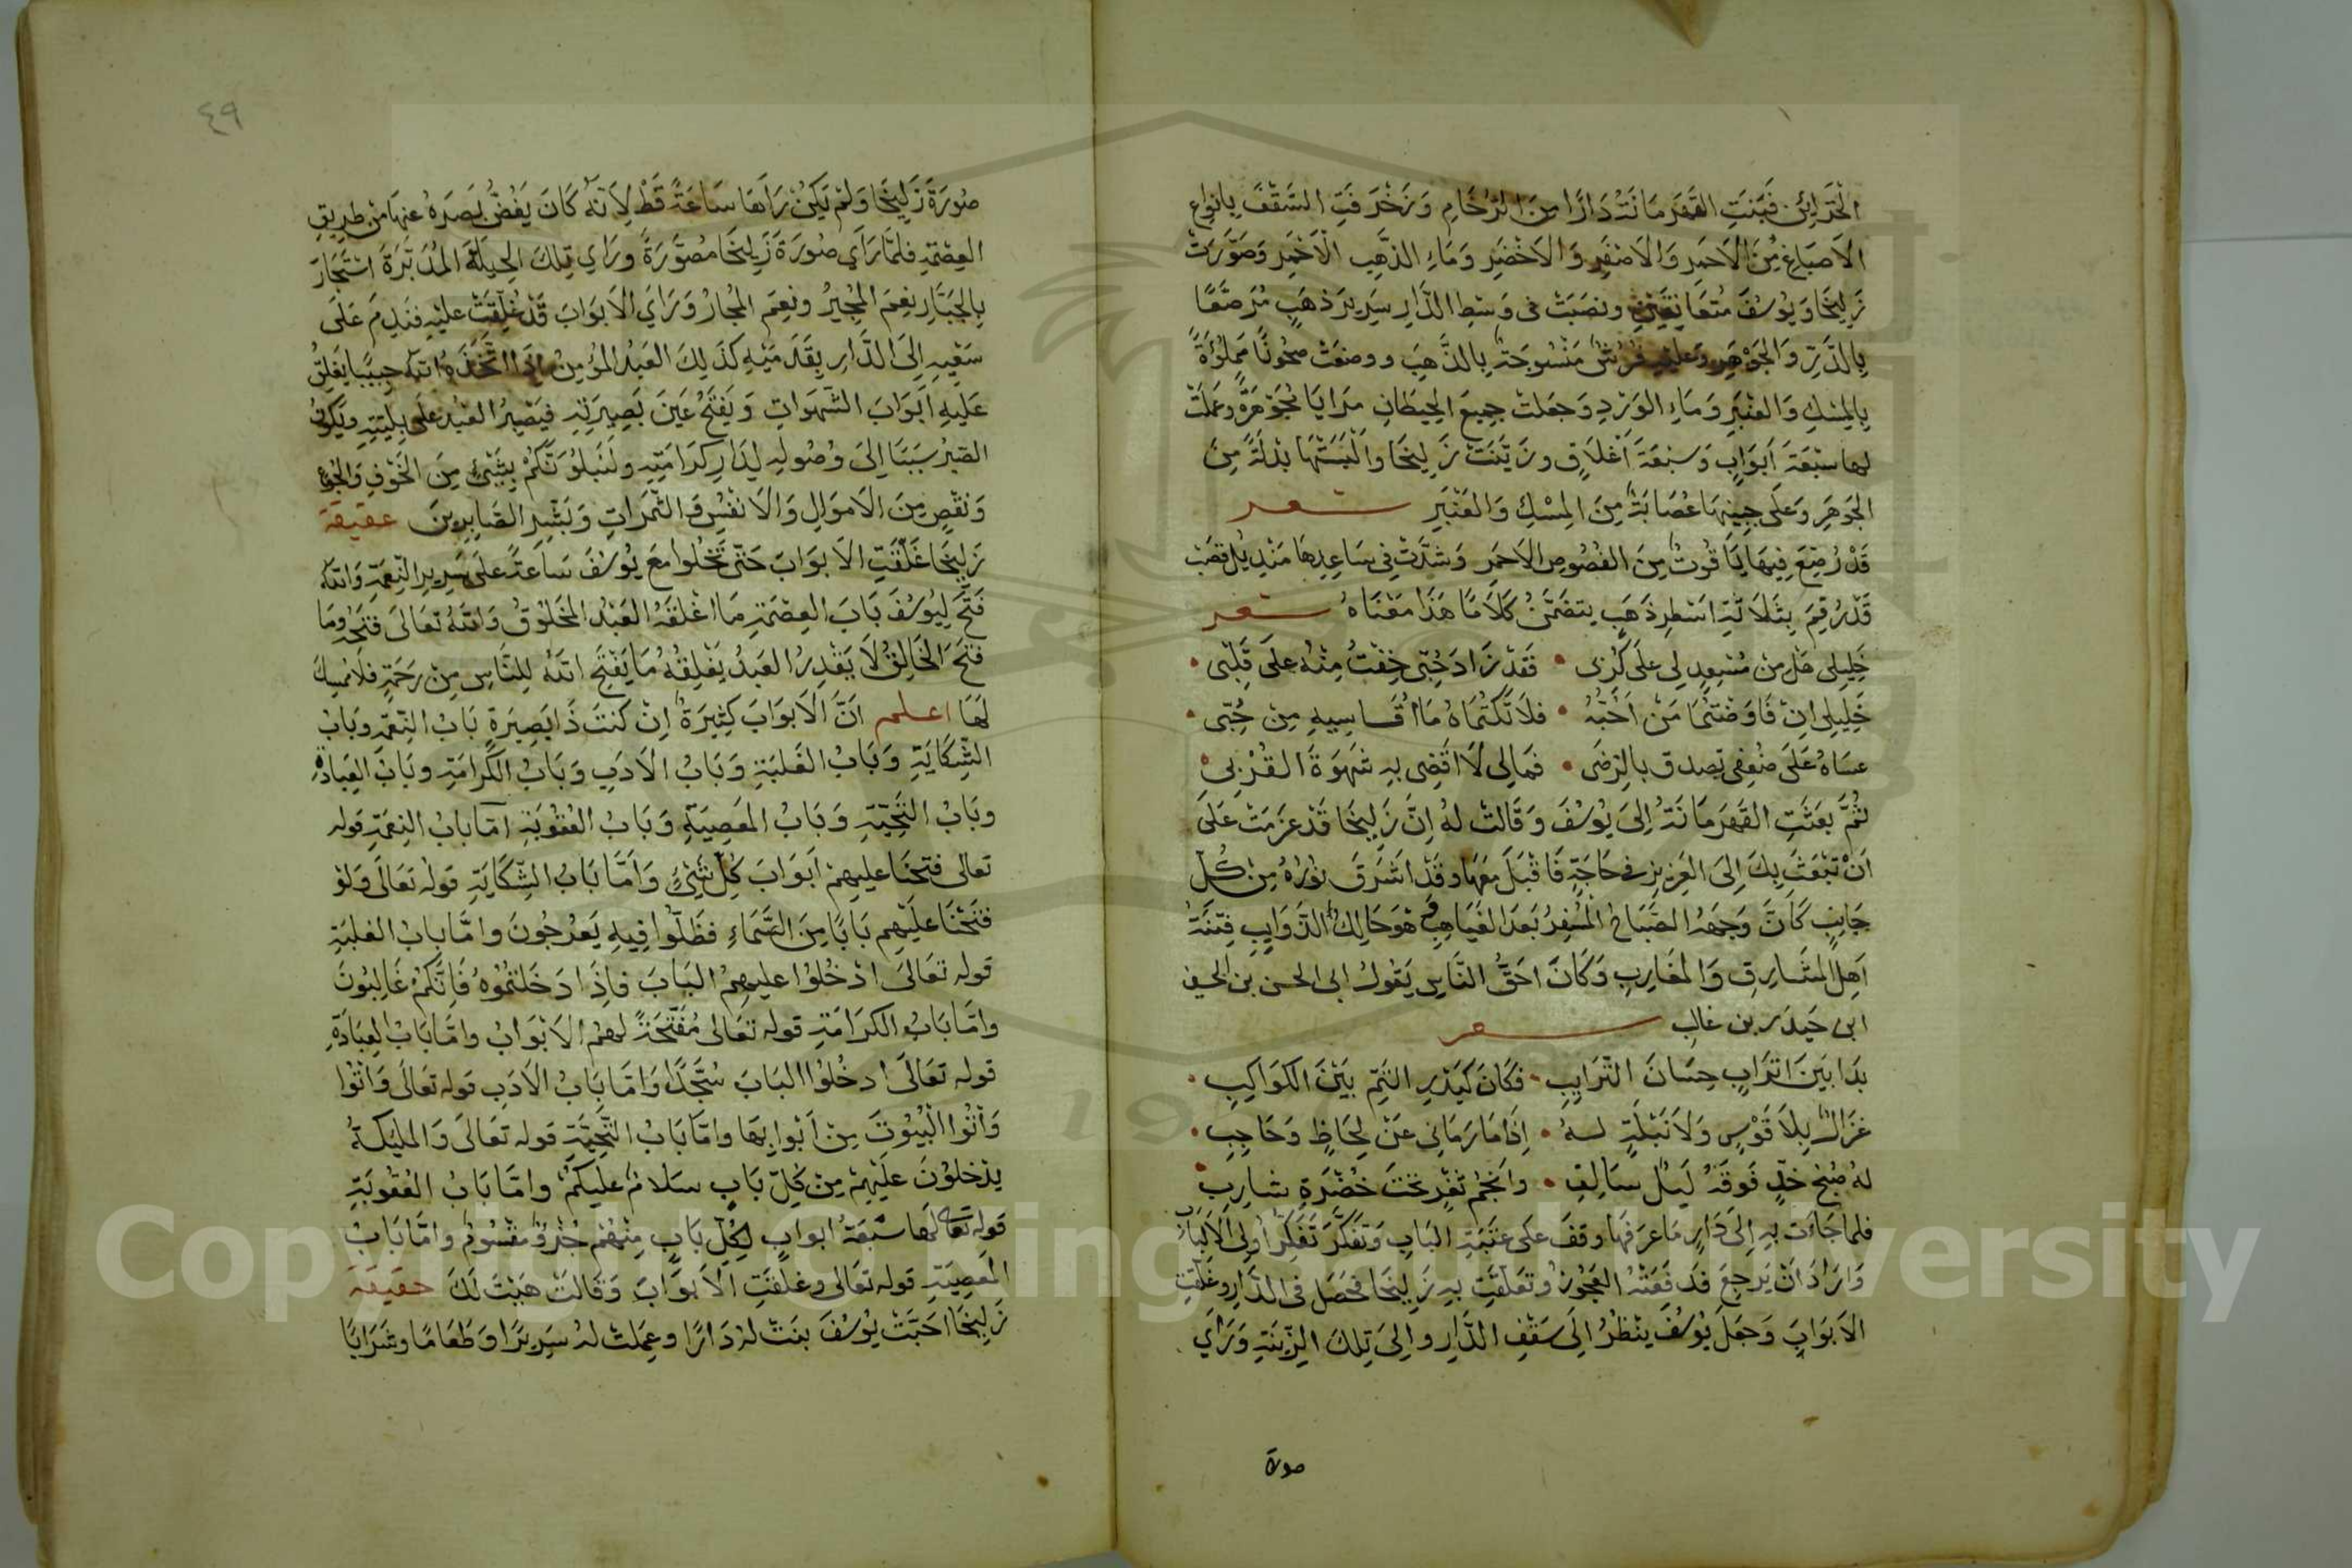 الْخَزَائِنِ فَبَنَتِ القَهَرمَانَةُ دَارًا مِنَ الرُّخَامِ وَزَخْرَفَتِ السَّقْفَ بِانواعِ
الاَصبَاغِ مِنَ الاَحمَرِ وَالاَصْفَرِ وَالاَخْضَرِ وَمَاءِ الذَّهَبِ الاَحْمَرِ وَصَوَّرَتْ
زَلِيخَا وَيُوسُفَ مُتَعَانِقَيْنِ ونصَبَتْ فى وَسْطِ الدَّارِ سَرِيرَ ذهَبٍ مُرَصَّعًا
بِالدُّرِّ وَالجَوْهَرِ وعليه فُرُشٌ مَنْسُوجَةٌ بِالذَّهَبِ ووضعَتْ صحُونًا مَملُؤَةً
بِالمِسْكِ وَالعَنْبَرِ وَمَاءِ الوَرْدِ وَجَعَلتْ جمِيعَ الحِيطَانِ مَرَايَا مُجَوْهَرَةً وعملَتْ
لهَا سَبْعَةَ اَبوَابٍ وَسَبْعَةَ اَغْلاَقٍ وزَيَّنَتْ زَلِيخَا وَاَلْبَسَتْهَا بَدْلَةً مِنَ
الجَوْهَرِ وَعَلَى جبِينِهَا عصَابَةٌ مِنَ المِسْكِ وَالعَنْبَرِ شعر
قَدْ رُصِّعَ فِيهَا يَاقُوتٌ مِنَ الفُصُوصِ الاَحمَرِ وَشدَّتْ فِى سَاعِدِهَا مَنْدِيلُ قصَبٍ
قَدْ رُقِمَ بِثَلاَثَةِ اَسْطُرٍ ذَهَبٍ يتضَمَّنُ كَلاَمًا هَذَا معْنَاهُ شعر
خَلِيلِى هَل مِنْ مُسْعِدٍ لى عَلَى كَرْبى • فَقَدْ زَادَ حُبِّى خِفْتُ مِنْهُ علَى قَلْبى •
خَلِيلِى اِنْ فَاوَضْتُمَا مَنْ اُحِبُّهُ • فلاَ تَكْتُمَاهُ مَا اُقَاسِيهِ مِنْ حُبّى •
عسَاهُ علَى ضعْفى يصدق بِالرِّضَى • فَمَالِى لاَ اَقْضِى بِهِ شَهوَةَ القُرْبِ
ثُمَّ بَعَثَتِ القَهرَمَانَةُ اِلىَ يُوسُفَ وَقَالتْ لهُ اِنَّ زَلِيخَا قَدْ عزَمَتْ عَلَى
اَنْ تَبْعَثَ بِكَ اِلىَ العَزِيزِ فى حَاجَةٍ فَاَقْبَلَ مَعَهَا وقَدْ اَشرَقَ نورُهُ مِن كُلّ
جَانِبٍ كَاَنَّ وَجهَهُ الصَّبَاحُ المُسْفِرُ بَعدَ الغَيَاهِبِ وهوَ حَالِكُ الذَّوَايِبِ فِتْنَةُ
اَهلِ المشَارِقِ وَالمَغَارِبِ وَكَانَ احَقُّ النَّاسِ يَقُولُ ابى الحسن بن
ابى حَيدَر بن غالِبٍ شعر
بدَا بَينَ اَترَابٍ حِسَانَ التَّرَايِبِ • فكَانَ كَبَدْرِ التِّمِّ بَيْنَ الكوَاكِبِ •
غزَالٌ بِلاَ قَوْسٍ وَلاَ نَبْلَةٍ لهُ • اِذَا مَا رَمَانِى عَنْ لِحَاظٍ وَحَاجِبِ •
لهُ صُبْحُ خَدٍّ فَوقَهُ لَيلُ سَالِفٍ • وانجُم ثغْرٍ تحْتَ خُضْرَةِ شَارِبِ
فلمَا جَاءَت بِهِ اِلىَ دَارٍ مَا عرَفَهَا وقفَ عَلى عتَبَةِ البَابِ وَتفَكَّرَ تَفَكُّرَ اُولِى الاَلْبَابِ
وَارَادَ اَنْ يَرجِعَ فَدفَعَتْهُ العَجُوزُ وتعَلَّقَتْ بِهِ زَلِيخَا فحَصَل فى الدَّارِ وغلّقتِ
الاَبوَابَ وَجعَلَ يُوسُفُ ينْظُرُ اِلىَ سَقْفِ الدَّارِ واِلىَ تِلكَ الزِّينَةِ وَرَاى
صورة
٤٩
صُورَةَ زَلِيخَا وَلمْ يَكُنْ رَاَهَا سَاعَةً قَطْ لِاَنَّهُ كَانَ يَغُضُّ بَصَرَهُ عنهَا مِن طرِيقِ
العِصْمَةِ فلمَّا رَاى صُورَةَ زَلِيخَا مصَوَّرَةً ورَاى تِلكَ الحِيلَةَ المُدَبَّرَةَ اسْتَجَارَ
بِالجَبَّارِ نِعمَ المُجِيرُ ونِعمَ المُجَارُ وَرَاىَ الاَبوَابَ قَدْ غُلِّقَتْ عليْهِ فنَدِمَ عَلَى
سَعْيِهِ اِلىَ الدَّارِ بِقَدَمَيْهِ كذَلِكَ العَبْدُ المؤمِنُ اِذَا اتَّخَذَهُ اللهُ حبِيبًا يغْلِقُ
عَلَيهِ اَبْوَابَ الشَّهَوَاتِ وَيَفتَحُ عَينَ بَصِيرَتِهِ فيَصْبِرُ العَبْد علَى بَلِيَّتِهِ ويَكُونُ
الصَّبْرُ سَبَبًا اِلىَ وُصُولِهِ لِدَارِ كرَامَتِهِ ولنَبلُوَنَّكُمْ بِشَىْءٍ مِنَ الخَوْفِ وَالجُوعِ
وَنَقْصٍ مِنَ الاَموَالِ وَالاَنفُسِ وَالثَّمَرَاتِ وَبَشِّرِ الصَّابِرِينَ حقيقة
زَلِيخَا غَلَّقَتِ الاَبوَابَ حَتّى تَخْلُوا مَعَ يُوسُفَ سَاعَةً علَى سَرِيرِ النِّعمَةِ وَاللهُ
فَتَحَ لِيُوسُفَ بَابَ العِصْمَةِ مَا اغْلقَهُ العَبْدُ المخلُوقُ وَاللهُ تعَالىَ فتحَهُ وَمَا
فَتَحَ الخَالِقُ لاَ يقْدِرُ العَبدُ يغْلِقُهُ مَا يَفْتَحِ اللهُ لِلنَّاسِ مِنْ رحْمَةٍ فلاَ مُمسِكَ
لَهَا اعلم اَنَّ الاَبوَابَ كَثِيرَةٌ اِنْ كنتَ ذَا بَصِيرَةٍ بَابُ النِّعَمِ وَبَابُ
الشِّكَايَةِ وَبَابُ الغَلبَةِ وَبَابُ الاَدَبِ وَبَابُ الكَرَامَةِ وبَابُ العِبَادَةِ
وبَابُ التَّحِيَّةِ وَبَابُ المَعصِيَةِ وَبَابُ العُقُوبَةِ امّا بَابُ النِّعمَةِ قوله
تعالى فتحنَا عليهِمْ اَبوَابَ كُلّ شَىْءٍ وَاَمَّا بَابُ الشِّكَايَةِ قوله تعَالَى وَلَوْ
فتَحْنَا علَيْهِم بَابًا مِنَ السَّمَاءِ فظَلّوا فِيهِ يَعْرُجُونَ وامَّا بابُ الغلبَةِ
قوله تعَالىَ ادْخُلُوا عليهِمُ البَابَ فاِذَا دَخَلتُمُوهُ فَاِنَّكُمْ غَالِبُونَ
وامَّا بَابُ الكرَامَةِ قوله تعَالى مُفَتَّحَةً لهمُ الاَبْوَابُ وامَّا بَابُ العِبَادَةِ
قوله تعَالَى ادخُلُوا البَابَ سُجَّدًا وَامَّا بَابُ الاَدَبِ قوله تعَالَى وَاْتُوا
وَاْتُوا البُيُوتَ مِنْ اَبْوَابِهَا وامَّا بَابُ التَّحِيَّةِ قوله تعَالَى وَالمليكةُ
يدْخلُونَ علَيْهِمْ مِنْ كُلِّ بَابٍ سلامٌ علَيكُمْ وامَّا بَابُ العُقُوبَةِ
قوله تعَالى لهَا سَبْعَةُ ابوابٍ لِكُلِّ بَابٍ مِنهُمْ جُزْؤٌ مقْسُومٌ وامَّا بَابُ
المَعصِيَةِ قوله تعَالى وغلّقَتِ الاَبوَابَ وَقالتْ هَيْتَ لَكَ حقيقة
زَلِيخَا احَبَّتْ يُوسُفَ بنَتْ لهُ دَارًا وعمِلتْ لهُ سَرِيرًا وَطَعَامًا وشَرَابًا
Copyright © King Saud University